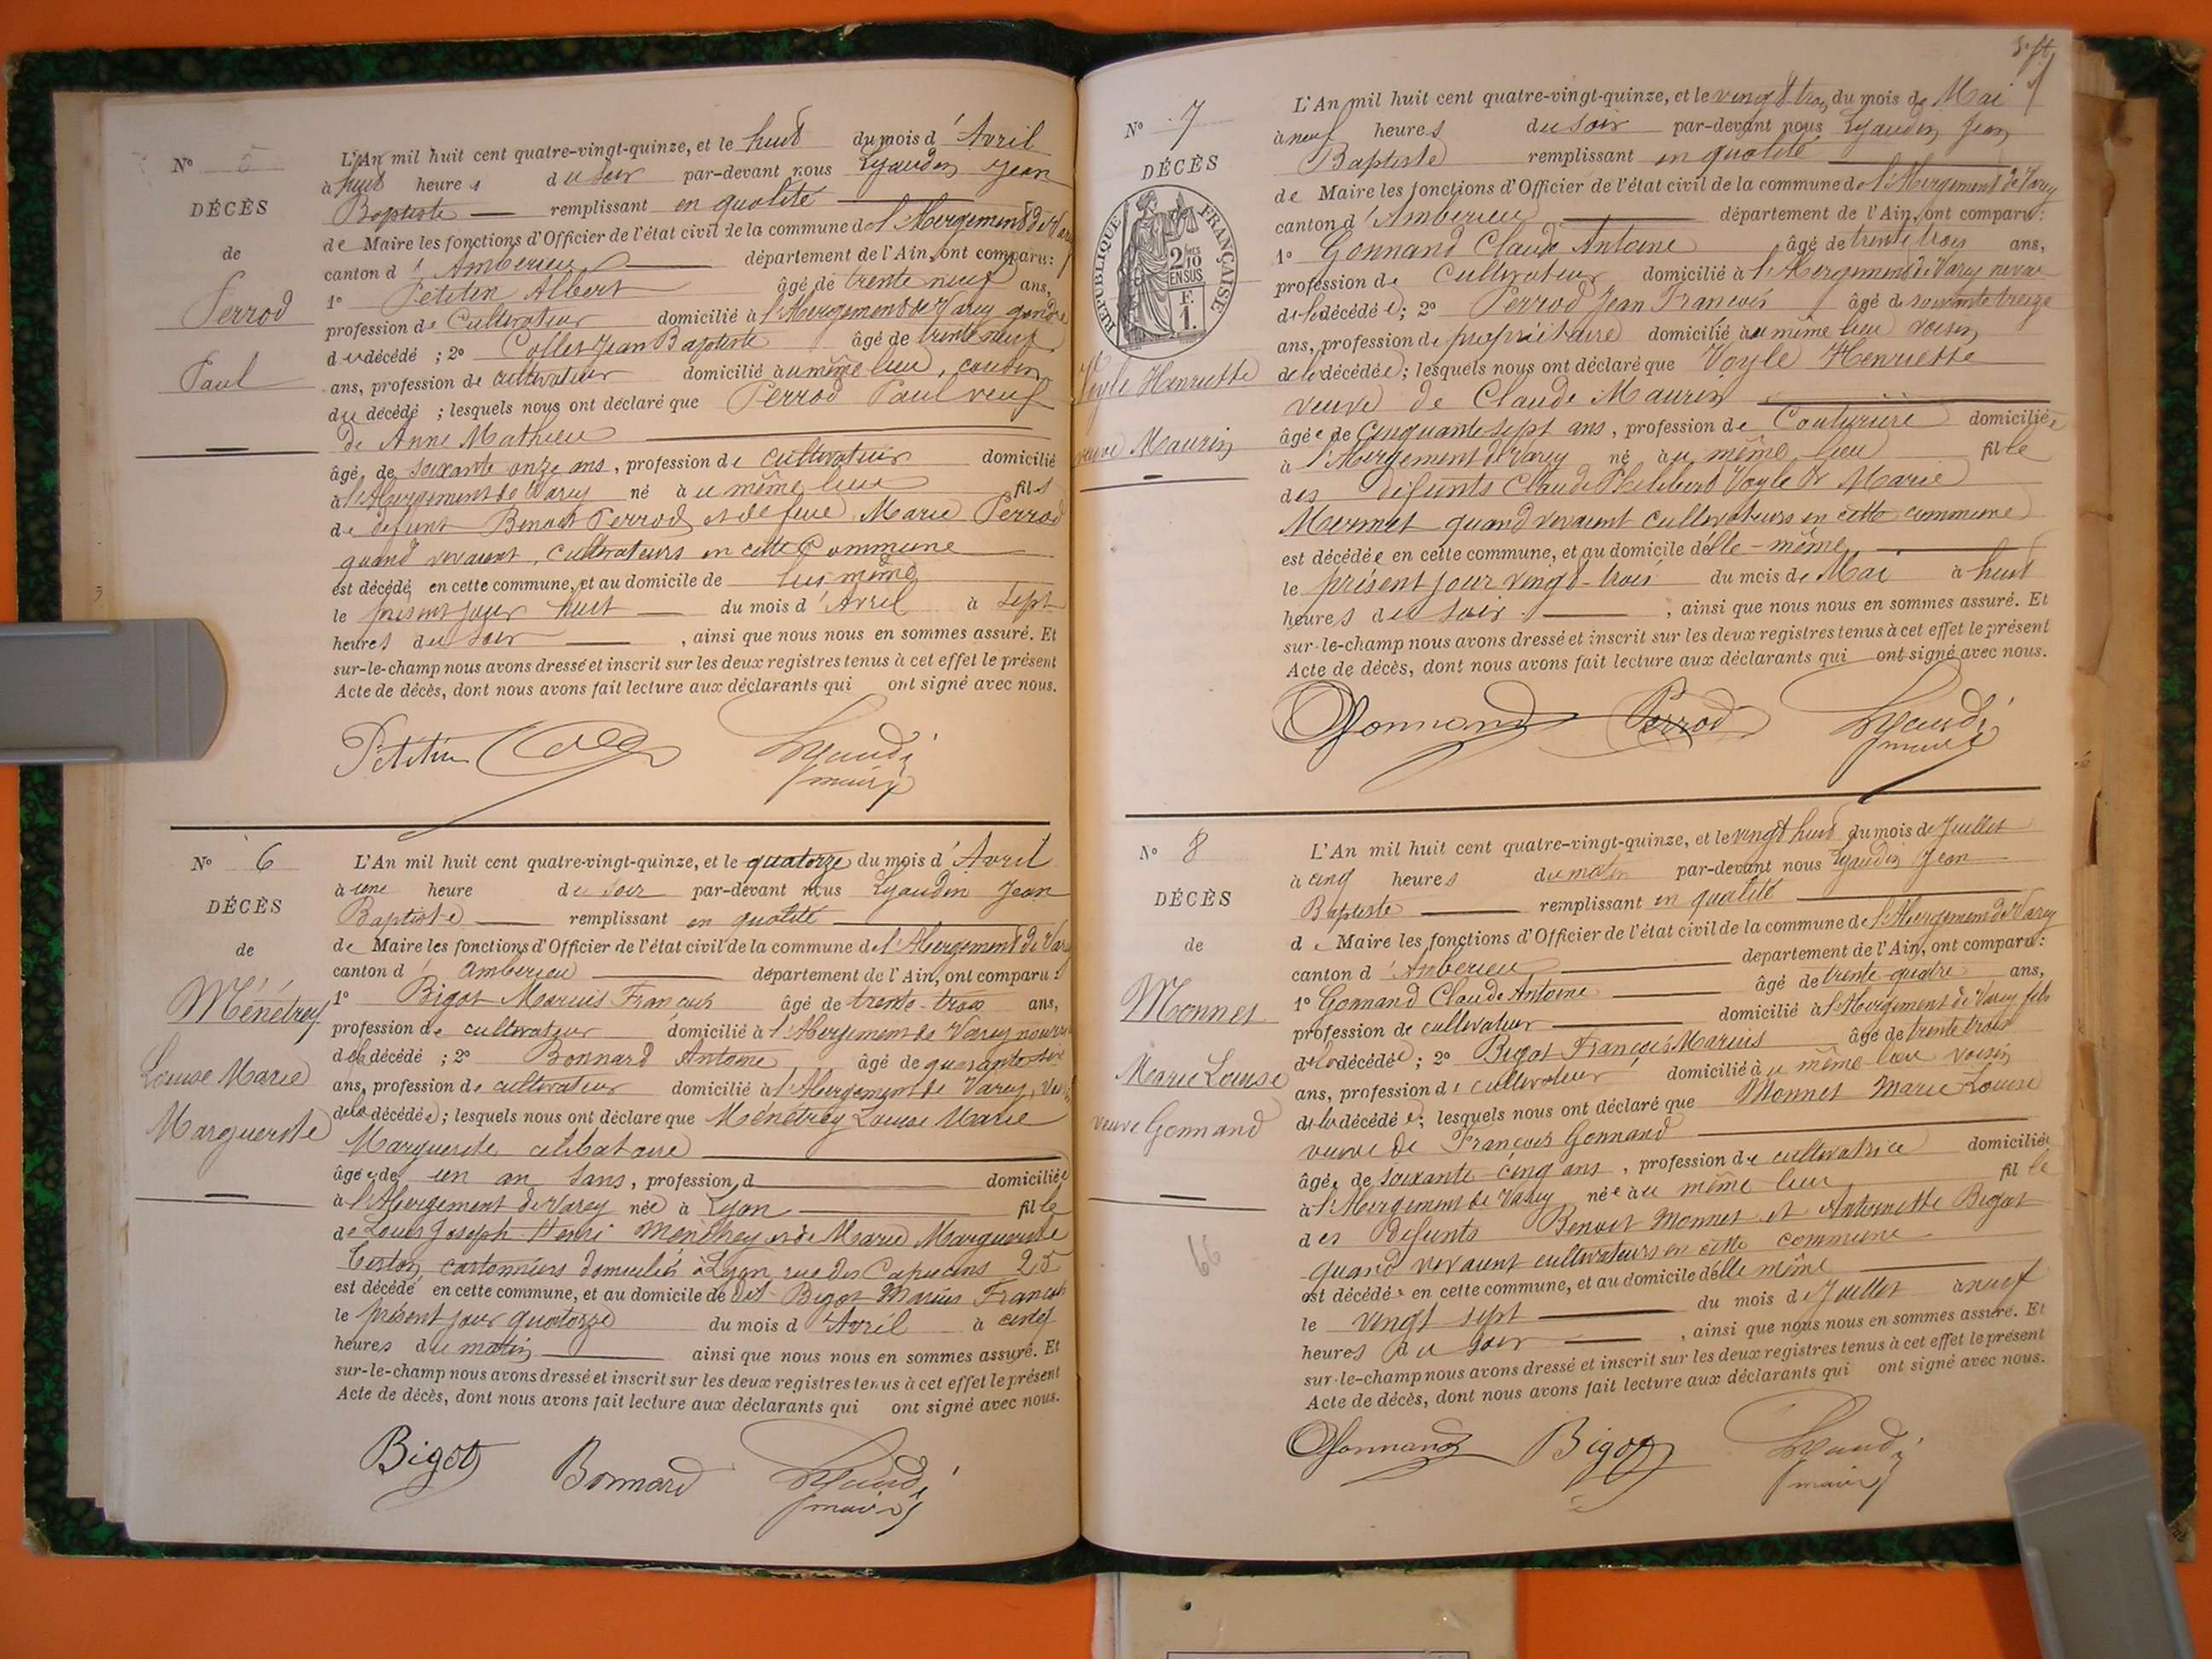 N° 5
DÉCÈS
de
Perrod
Paul
L'An mil huit cent quatre-vingt-quinze, et le huit du mois d'Avril
à huit heures du soir par-devant nous Lyaudin Jean
Baptiste remplissant en qualité
de Maire les fonctions d'Officier de l'état civil de la commune de l'Abergement de Varey
canton d'Amberieu département de l'Ain, ont comparu :
1° Petitin Albert âgé de trente neuf ans,
profession de Cultivateur domicilié à l'Abergement de Varey gendre
du décédé ; 2° Collet Jean Baptiste âgé de trente neuf
ans, profession de cultivateur domicilié au même lieu, cousin
du décédé ; lesquels nous ont déclaré que Perrod Paul veuf
de Anne Mathieu
âgé de soixante onze ans, profession de cultivateur domicilié
à l'Abergement de Varey né au même lieu fils
de défunt Benoit Perrod et de feue Marie Perrod
quand vivaient, cultivateurs en cette Commune
est décédé en cette commune, et au domicile de lui même
le présent jour huit du mois d'Avril à sept
heures du soir, ainsi que nous nous en sommes assuré. Et
sur-le-champ nous avons dressé et inscrit sur les deux registres tenus à cet effet le présent
Acte de décès, dont nous avons fait lecture aux déclarants qui ont signé avec nous.
Petitin Lyaudin
maire
N° 6
DÉCÈS
de
Ménétrey
Louise Marie
Marguerite
L'An mil huit cent quatre-vingt-quinze, et le quatorze du mois d'Avril
à une heure du soir par-devant nous Lyaudin Jean
Baptiste remplissant en qualité
de Maire les fonctions d'Officier de l'état civil de la commune de l'Abergement de Varey
canton d'Amberieu département de l'Ain, ont comparu :
1° Bigot Marius François âgé de trente-trois ans,
profession de cultivateur domicilié à l'Abergement de Varey
de la décédé ; 2° Bonnard Antoine âgé de quarante
ans, profession de cultivateur domicilié à l'Abergement de Varey,
de la décédée ; lesquels nous ont déclaré que Ménétrey Louise Marie
Marguerite célibataire
âgée de un an sans, profession d domiciliée
à l'Abergement de Varey née à Lyon fille
de Louis Joseph Henri Ménétrey et de Marie Marguerite
cartonniers domiciliés à Lyon, rue des Capucins 25
est décédé en cette commune, et au domicile de dit Bigot Marius François
le présent jour quatorze du mois d'Avril à cinq
heures du matin ainsi que nous nous en sommes assuré. Et
sur-le-champ nous avons dressé et inscrit sur les deux registres tenus à cet effet le présent
Acte de décès, dont nous avons fait lecture aux déclarants qui ont signé avec nous.
Bigot Bonnard Lyaudin
maire
N° 7
DÉCÈS
RÉPUBLIQUE FRANÇAISE
2/10
EN SUS
F.
1.
Voyle Henriette
veuve Maurin
L'An mil huit cent quatre-vingt-quinze, et le vingt trois du mois de Mai
à neuf heures du soir par-devant nous Lyaudin Jean
Baptiste remplissant en qualité
de Maire les fonctions d'Officier de l'état civil de la commune de l'Abergement de Varey
canton d'Amberieu département de l'Ain, ont comparu :
1° Gonnand Claude Antoine âgé de trente trois ans,
profession de Cultivateur domicilié à l'Abergement de Varey neveu
de la décédée ; 2° Perrod Jean François âgé de soixante treize
ans, profession de propriétaire domicilié au même lieu voisin
de la décédée ; lesquels nous ont déclaré que Voyle Henriette
veuve de Claude Maurin
âgée de Cinquante sept ans, profession de Couturière domiciliée
à l'Abergement de Varey né au même lieu fille
des défunts Claude Philibert Voyle & Marie
Mermet quand vivaient cultivateurs en cette commune
est décédée en cette commune, et au domicile d'elle-même
le présent jour vingt-trois du mois de Mai à huit
heures du soir, ainsi que nous nous en sommes assuré. Et
sur-le-champ nous avons dressé et inscrit sur les deux registres tenus à cet effet le présent
Acte de décès, dont nous avons fait lecture aux déclarants qui ont signé avec nous.
Gonnand Perrod Lyaudin
maire
N° 8
DÉCÈS
de
Monnet
Marie Louise
veuve Gonnand
66
L'An mil huit cent quatre-vingt-quinze, et le vingt huit du mois de Juillet
à cinq heures du matin par-devant nous Lyaudin Jean
Baptiste remplissant en qualité
de Maire les fonctions d'Officier de l'état civil de la commune de l'Abergement de Varey
canton d'Amberieu département de l'Ain, ont comparu :
1° Gonnand Claude Antoine âgé de trente-quatre ans,
profession de cultivateur domicilié à l'Abergement de Varey fils
de la décédée ; 2° Bigot François Marius âgé de trente trois
ans, profession de cultivateur domicilié au même lieu voisin
de la décédée ; lesquels nous ont déclaré que Monnet Marie Louise
veuve de François Gonnand
âgée de soixante-cinq ans, profession de cultivatrice domiciliée
à l'Abergement de Varey née au même lieu fille
des défunts Benoit Monnet et Antoinette Bigot
quand vivaient cultivateurs en cette commune
est décédée en cette commune, et au domicile d'elle même
le vingt sept du mois de Juillet à neuf
heures du soir, ainsi que nous nous en sommes assuré. Et
sur-le-champ nous avons dressé et inscrit sur les deux registres tenus à cet effet le présent
Acte de décès, dont nous avons fait lecture aux déclarants qui ont signé avec nous.
Gonnand Bigot Lyaudin
maire